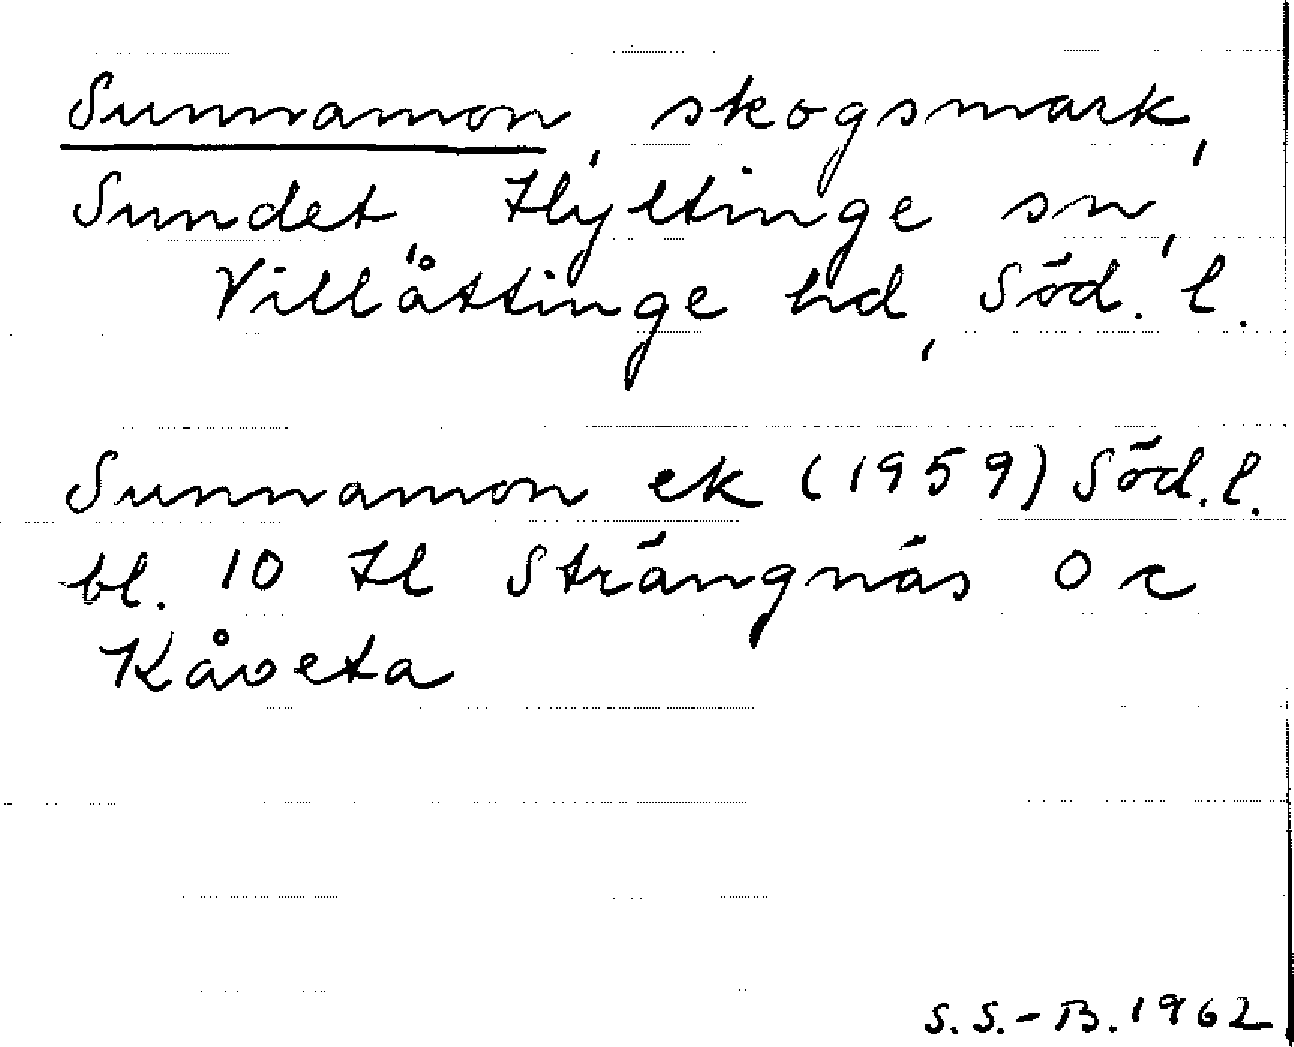 Sunnamon, skogsmark,
Sundet, Hyltinge sn,
Villåttinge hd, Söd. l.
Sunnamon ek (1959) Söd. l.
bl. 10 Hl Strängnäs O c
Kåveta
S. S.-B. 1962